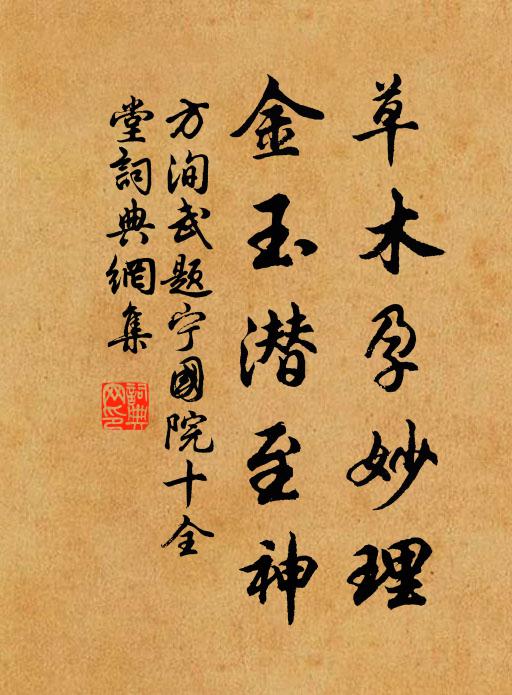 草木孕妙理
金玉潜至神
方洵武题宁國院十全
堂詞典網集
詞典
网印